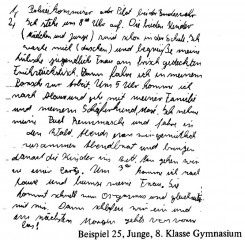 1) Polizeikommissar oder Pilot bei der Bundeswehr
2) Ich stehe um 8 Uhr auf. Die beiden Kinder
(Mädchen und Junge) sind schon in der Schule. Ich
wasche mich (duschen) und begrüße meine
hübsche jugendliche Frau am frisch gedeckten
Frühstückstisch. Dann fahre ich in meinem
Porsche zur Arbeit. Um 5 Uhr komme ich
nach Hause und geh mit meiner Familie
und meinem Schäferhund, Ich nehme
mein und fahre in
den Wald. Abends gemütlich
zusammen Abendbrot und bringe
danach die Kinder ins Bett. Dann gehen wir
zu einer Party. Um komme ich nach
Hause und meine Frau. Sie
kommt schnell zum Orgasmus und gleichzeitig
mit mir. Dann schlafen wir ein und
am nächsten Morgen geht von vorn
los!
Beispiel 25, Junge, 8. Klasse Gymnasium